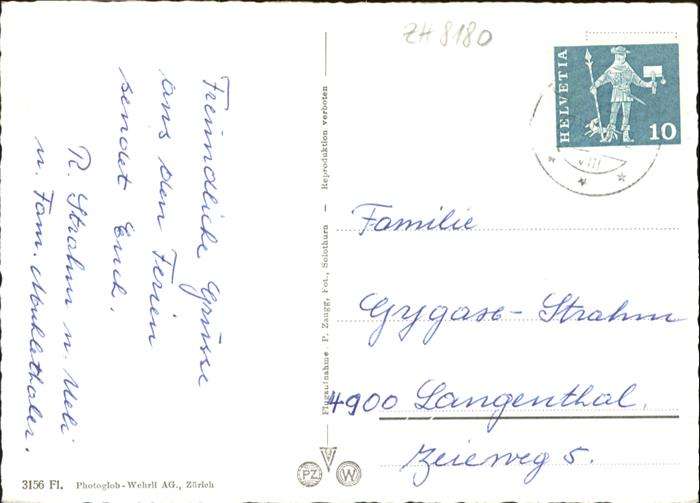 ZH 8180
HELVETIA
10
VIII
Freundliche Grüsse
aus den Ferien
sendet Euch.
R. Strahm u. Ueli
u. Fam.
Flugaufnahme P. Zaugg, Fot., Solothurn — Reproduktion verboten —
Familie
Gygax-Strahm
4900 Langenthal.
Zeieweg 5.
PZ
W
3156 Fl. Photoglob-Wehrli AG., Zürich